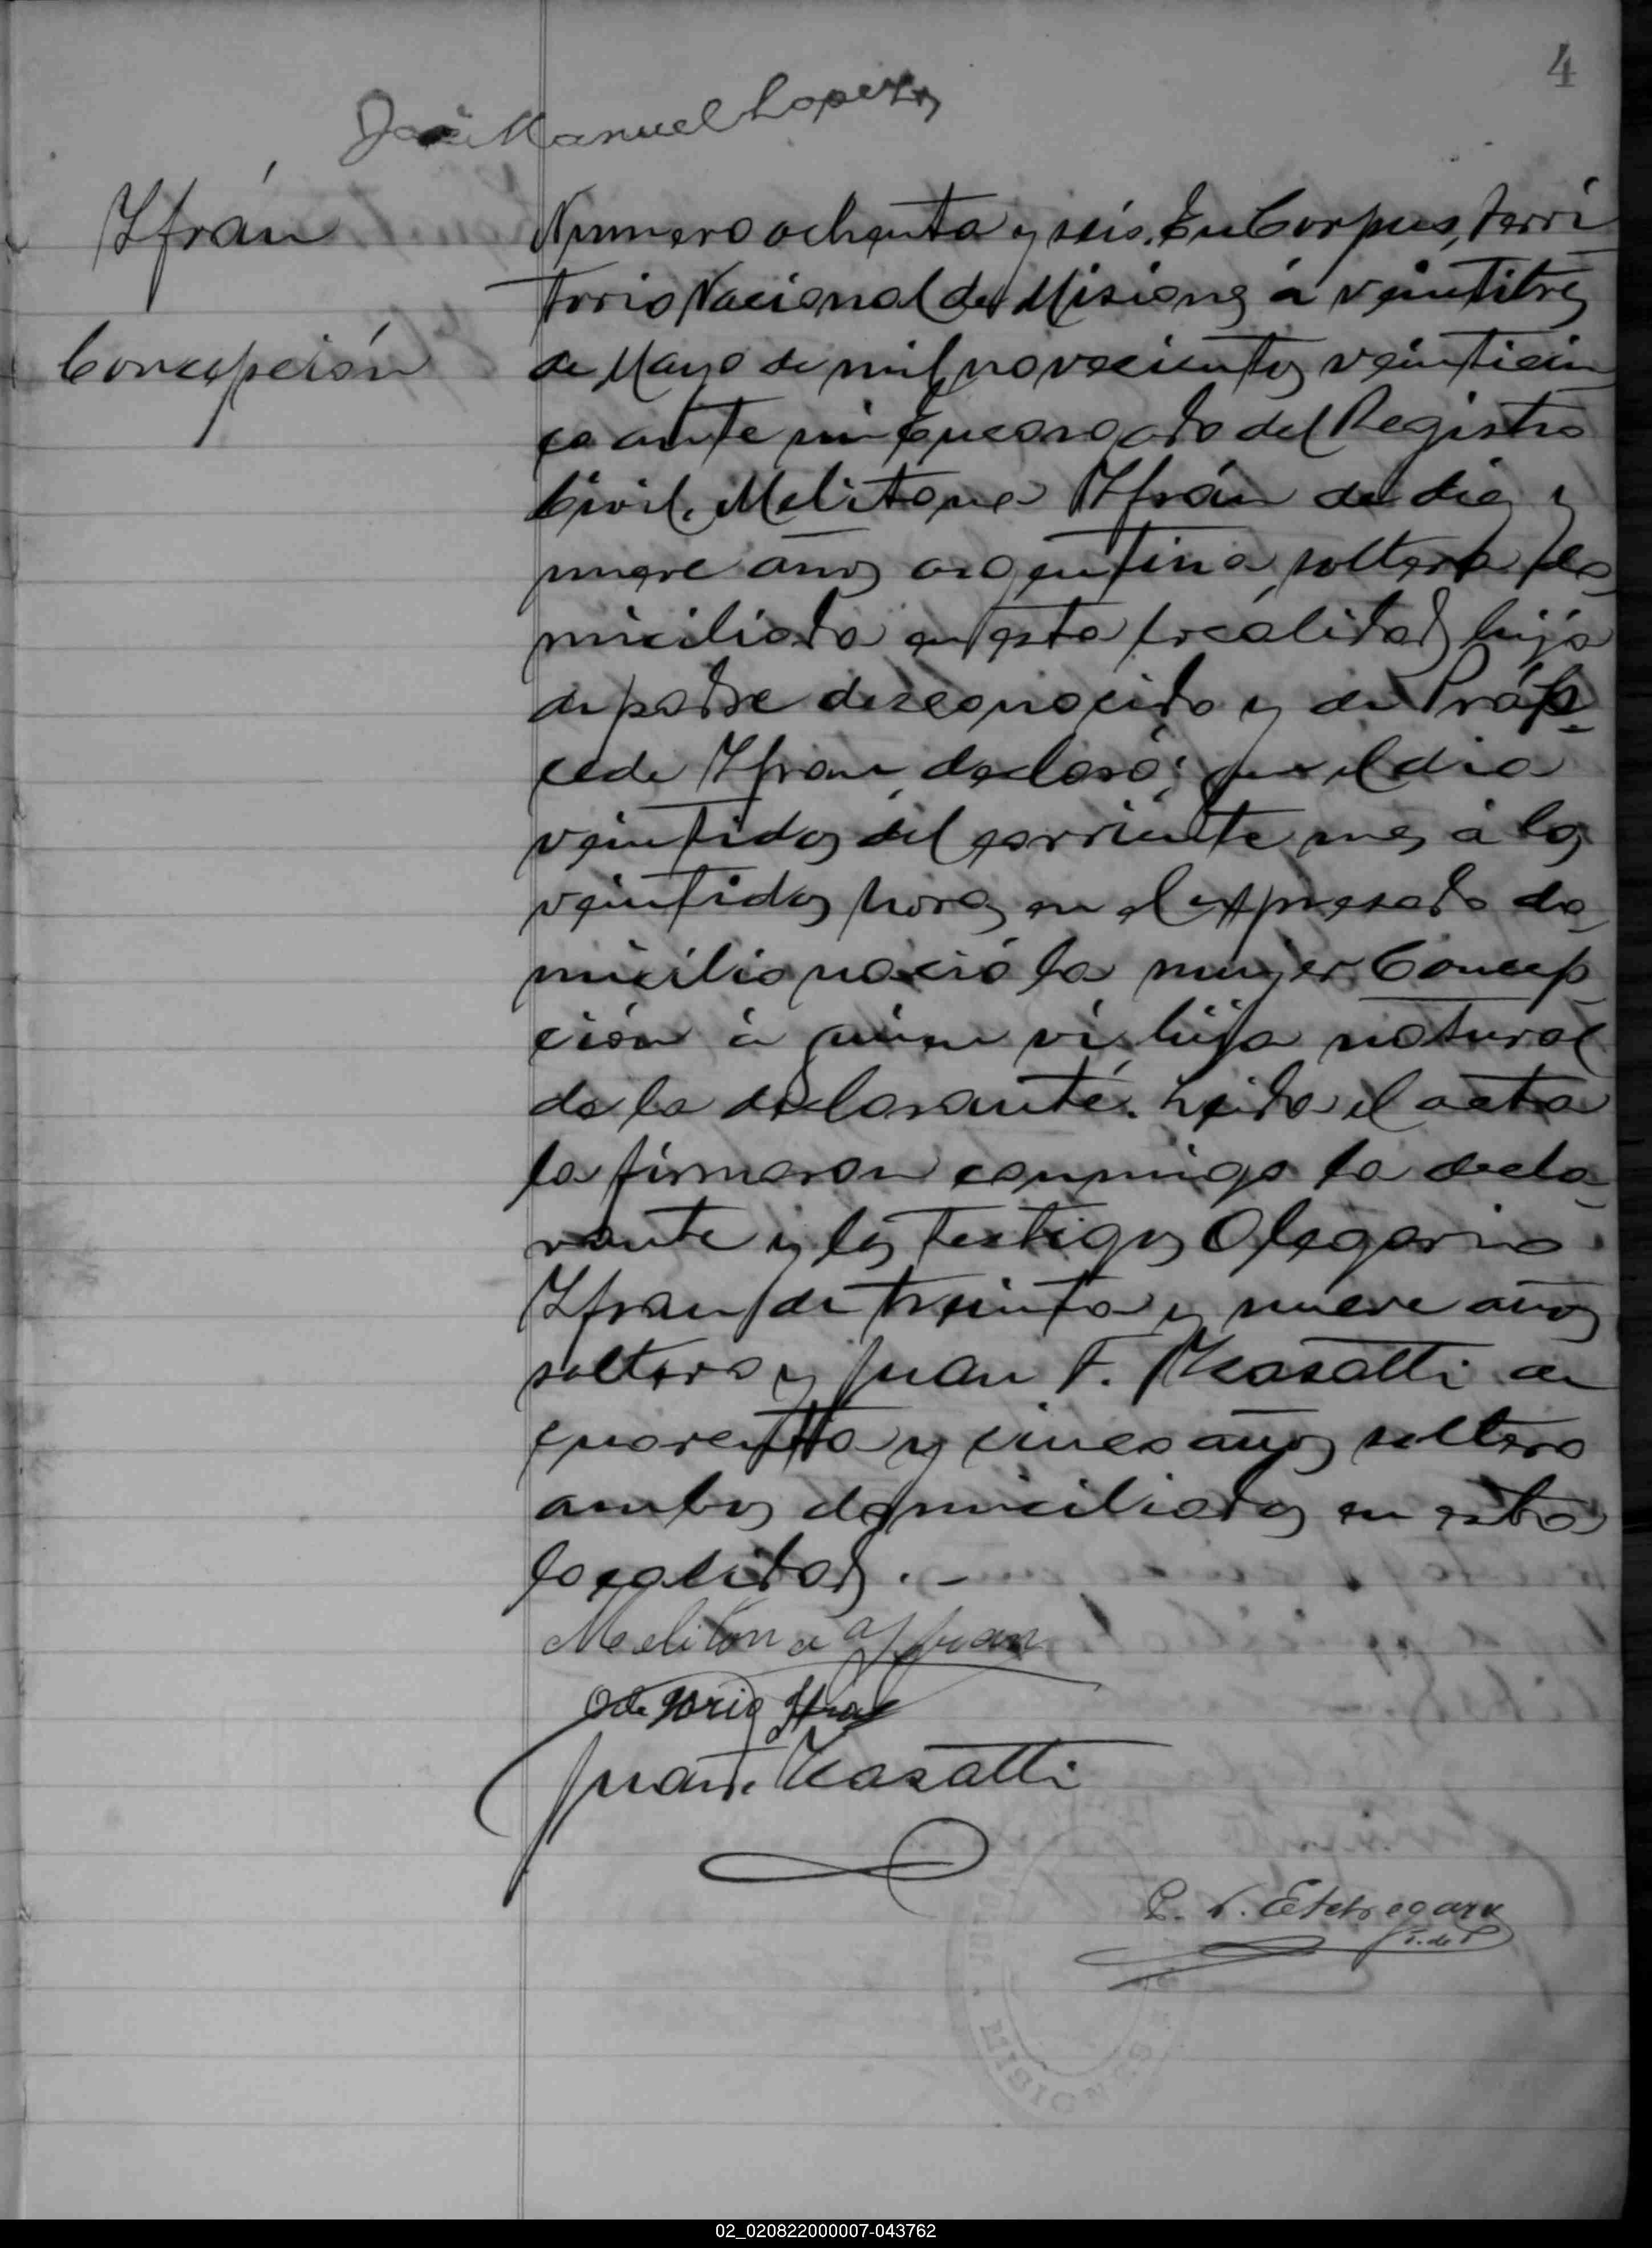 4
José Manuel Lopez
Ifrán
Concepción
Numero ochenta y seis. En Corpus, Terri
torio Nacional de Misiones á veintitres
de Mayo de mil novecientos veinticin
co ante mi Encargado del Registro
Civil, Melitona Ifrán de diez y
nueve años argentina soltera do
miciliada en esta localidad hija
de padre desconocido y de
cede Ifran, declaró: que el dia
veintidos del corriente mes á las
veintidos horas en el expresado do
micilio nació la mujer Concep
ción á quien vi, hija natural
de la declarante. Leida el acta
la firmaron conmigo la decla
rante y los testigos Olegario
Ifran de treinta y nueve años
soltero y Juan F. Kasatti de
cuarenta y cinco años soltero
ambos domiciliados en esta
localidad. –
Melitona Ifran
Olegario Ifran
Juan F. Kasatti
P. V. Etchegaray
J. de P.
MISIONES
02_020822000007-043762